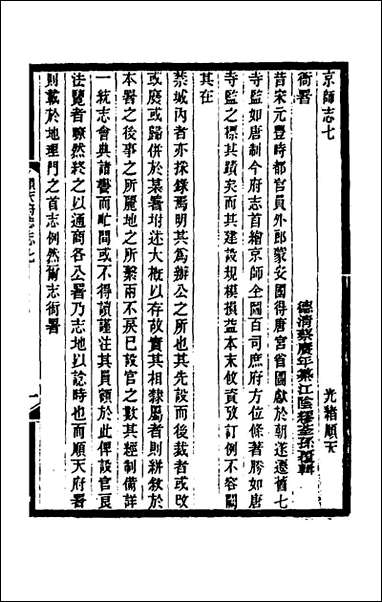 京師志七 光緒順天
衙署 德清蔡賡年纂江陰繆荃孫覆輯
昔宋元豐時都官員外郎蒙安國得唐宮省圖獻於朝遂遷舊七
寺監如唐制今府志首繪京師全圖百司庶府方位條著勝如唐
寺監之標其蹟矣而其建設規模損益本末攸資攷訂例不容闕
其在
禁城內者亦採錄焉明其為辦公之所也其先設而後裁者或改
或廢或歸併於某署坿述大概以存故實其相隸屬者則緐敘於
本署之後事之所麗地之所繫兩不戾已設官之數其經制備詳
一統志會典諸書而职問或不得讀謹注其員額於此俾設官良
法覽者瞭然終之以通商各公署乃志地以諗時也而順天府署
則載於地理門之首志例然爾志衙署
順天府志志七